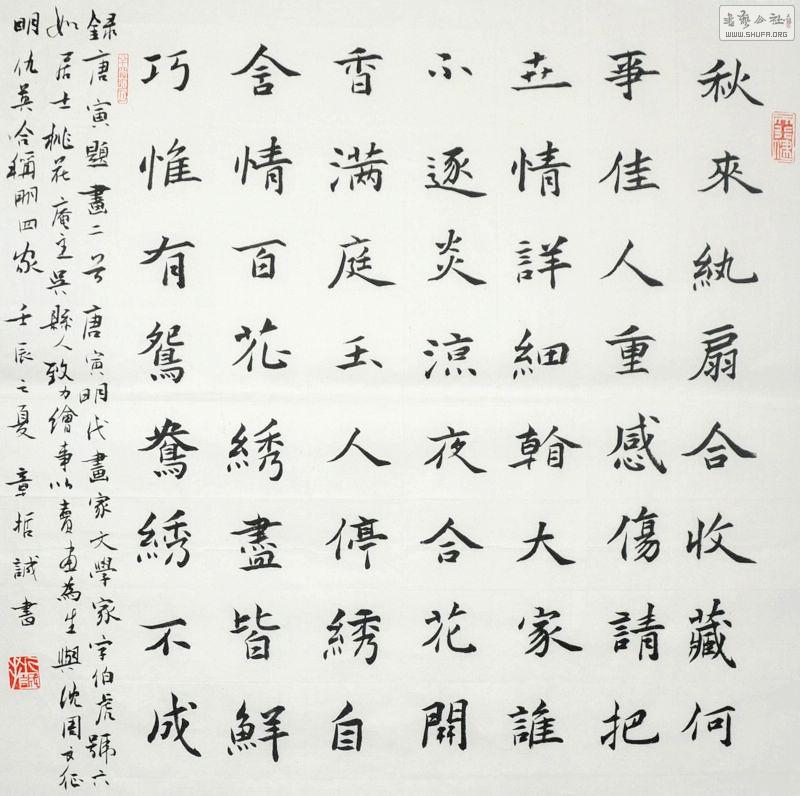 秋來紈扇合收藏何
事佳人重感傷請把
世情詳細看大家誰
不逐炎涼夜合花開
香滿庭玉人停綉自
含情百花綉盡皆鮮
巧惟有鴛鴦綉不成
錄唐寅題畫二首唐寅明代畫家文學家字伯虎號六
如居士桃花庵主吳縣人致力繪事以賣畫為生與沈周文征
明仇英合稱明四家壬辰之夏章哲誠書
書藝公社
WWW.SHUFA.ORG